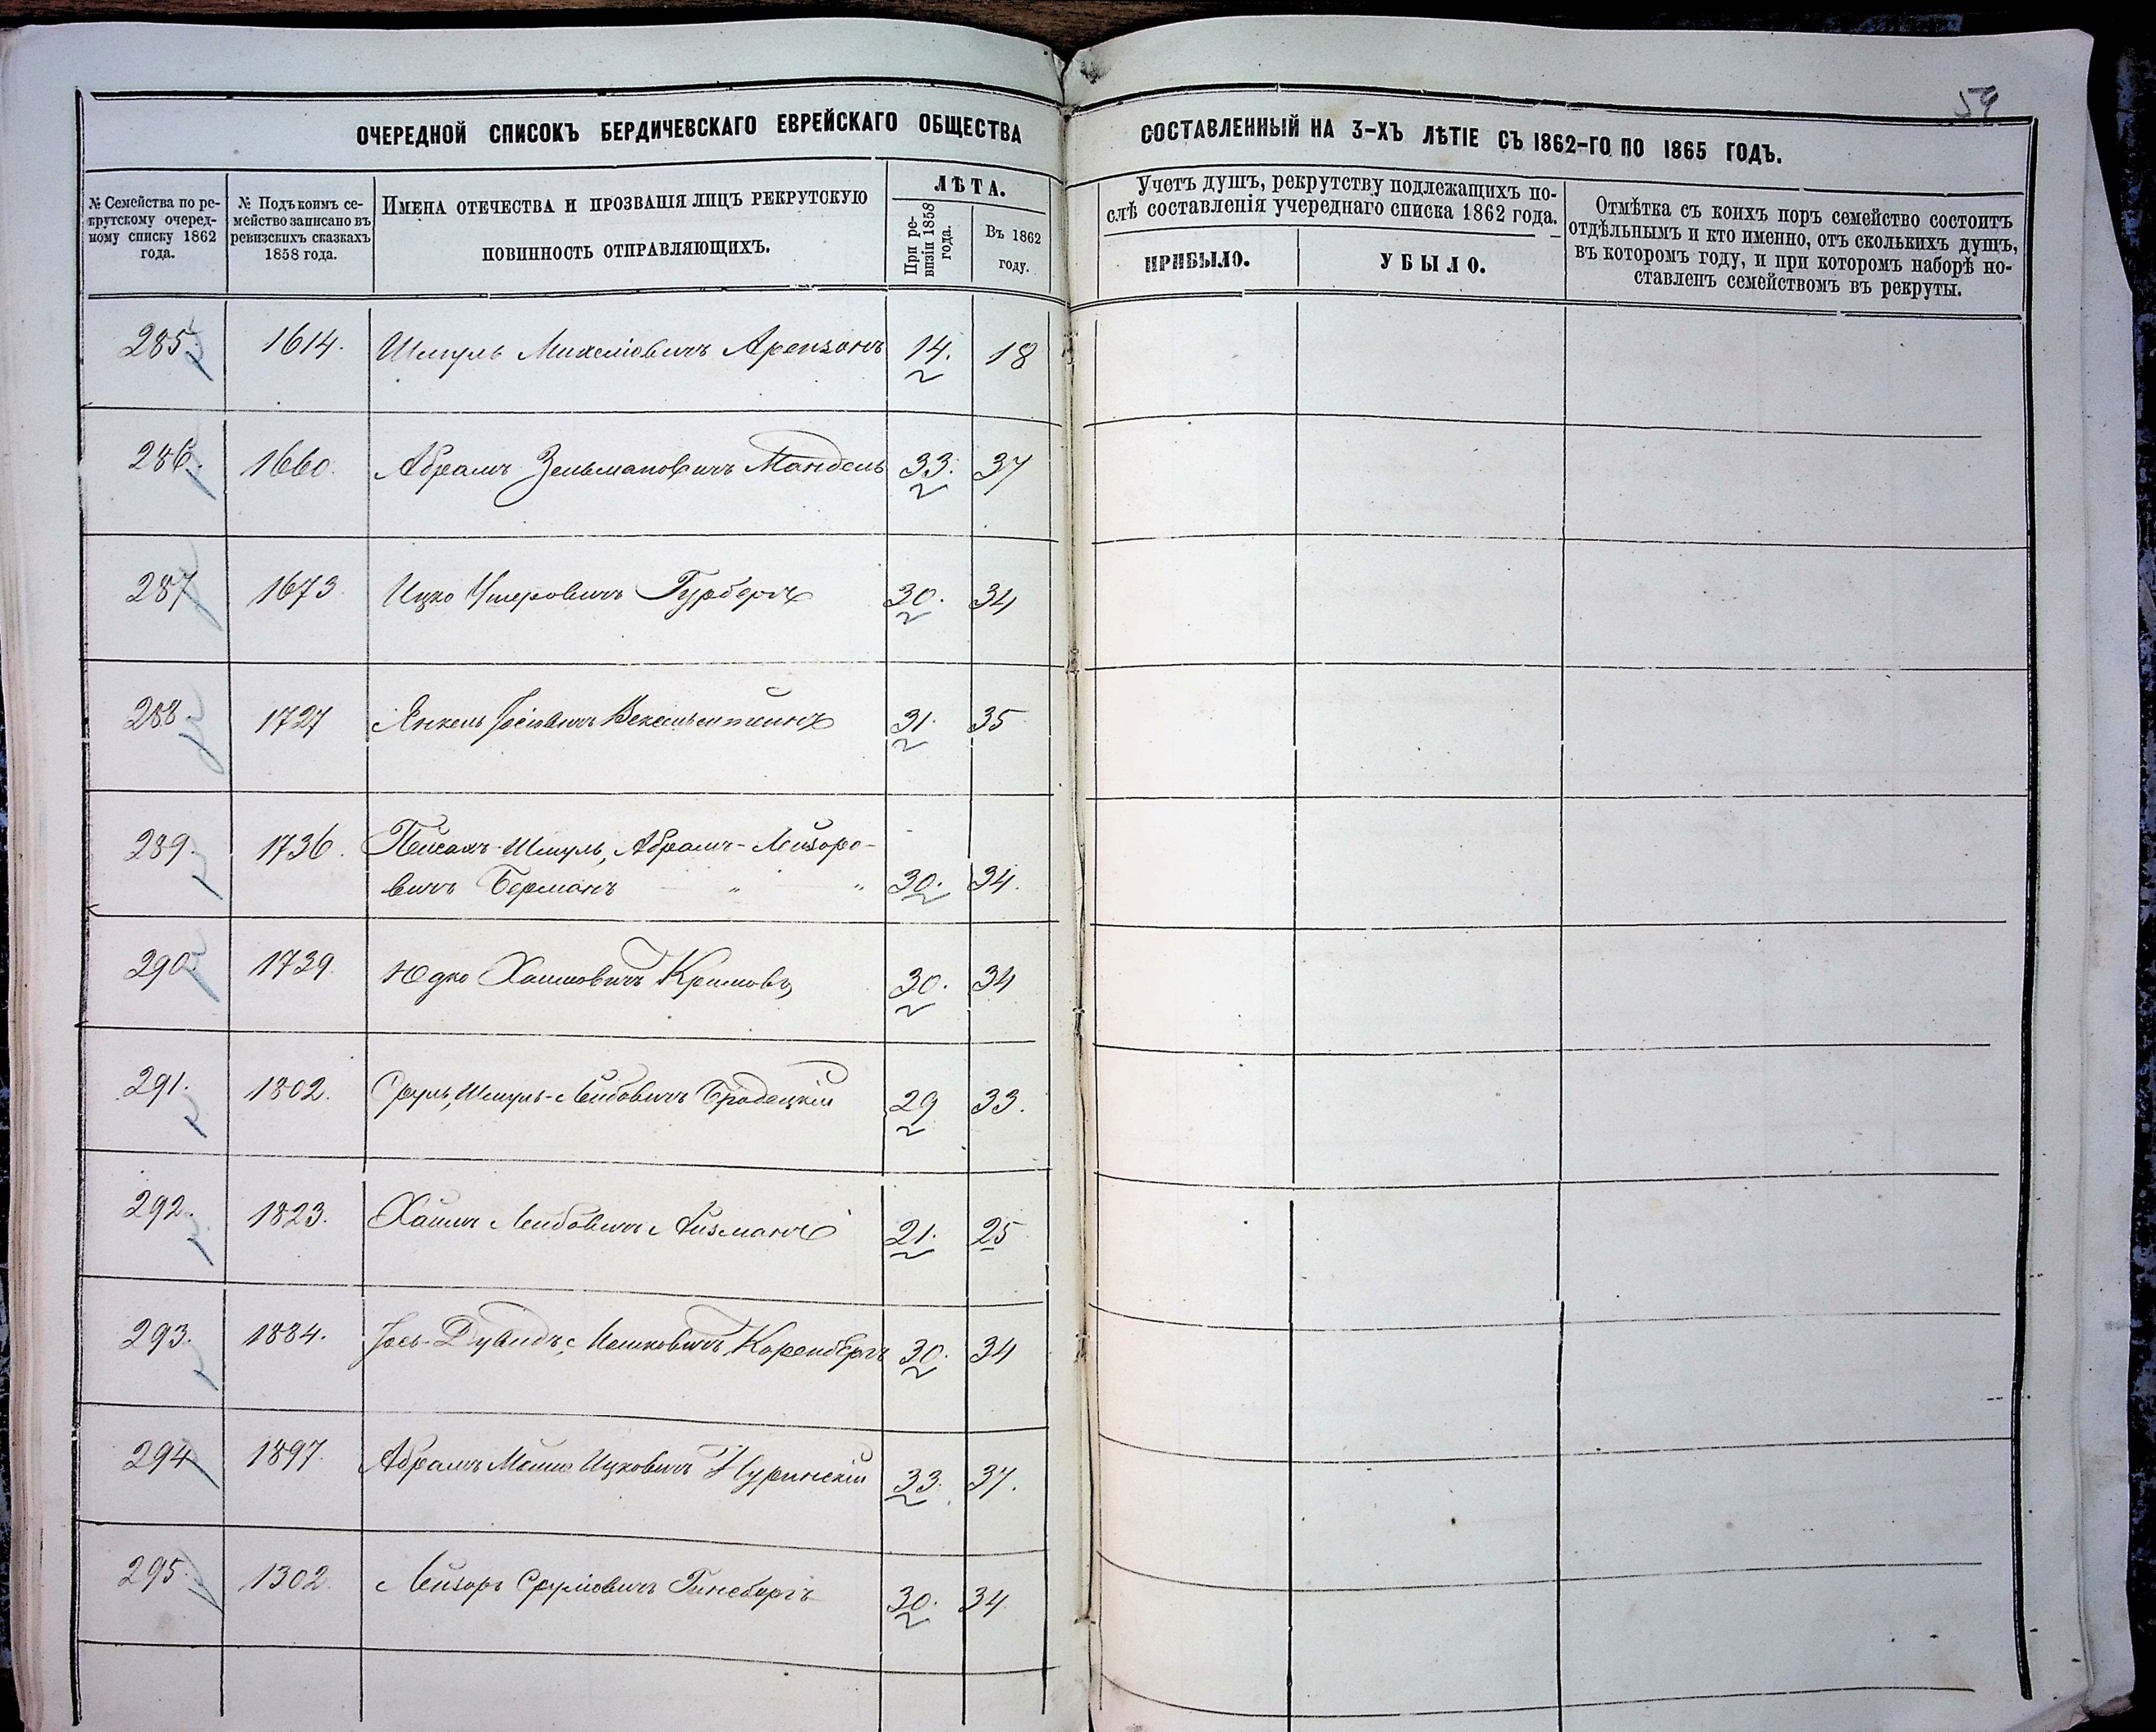 54
ОЧЕРЕДНОЙ СПИСОКЪ БЕРДИЧЕВСКАГО ЕВРЕЙСКАГО ОБЩЕСТВА
СОСТАВЛЕННЫЙ НА 3-ХЪ ЛѢТІЕ СЪ 1862-ГО ПО 1865 ГОДЪ.
№ Семейства по ре-
крутскому очеред-
ному списку 1862
года.
№ Подъ коимъ се-
мейство записано въ
ревизскихъ сказкахъ
1858 года.
ИМЕНА ОТЕЧЕСТВА И ПРОЗВАНІЯ ЛИЦЪ РЕКРУТСКУЮ
ПОВИННОСТЬ ОТПРАВЛЯЮЩИХЪ.
ЛѢТА.
При ре-
визіи 1858
года.
Въ 1862
году.
Учетъ душъ, рекрутству подлежащихъ по-
слѣ составленія учереднаго списка 1862 года.
ПРИБЫЛО.
УБЫЛО.
Отмѣтка съ коихъ поръ семейство состоитъ
отдѣльнымъ и кто именно, отъ сколькихъ душъ,
въ которомъ году, и при которомъ наборѣ по-
ставленъ семействомъ въ рекруты.
285. 1614. Шмуль Михеліовичъ Арензонъ 14. 18
286. 1660. Абрамъ Зельмановичъ Мандель 33. 37
287 1673 Ицко Ушеровичъ Гурбергъ 30. 34
288. 1727 Янкель Іосіовичъ Векельштейнъ 31. 35
289. 1736. Пейсахъ-Шмуль, Абрамъ-Лейзоро-
вичъ Берманъ „ „ 30. 34.
290 1739. Юдко Хаимовичъ 30. 34
291. 1802. Сруль, Шмуль-Лейбовичъ Бродецкій 29 33.
292. 1823. Хаимъ Лейбовичъ Айзманъ 21. 25
293. 1884. Іось-Дувидъ, Мошковичъ Коренбергъ 30. 34
294 1897. Абрамъ Мошко Ицковичъ 33. 37.
295. 1302. Лейзоръ Сруліовичъ Гинсбергъ 30. 34